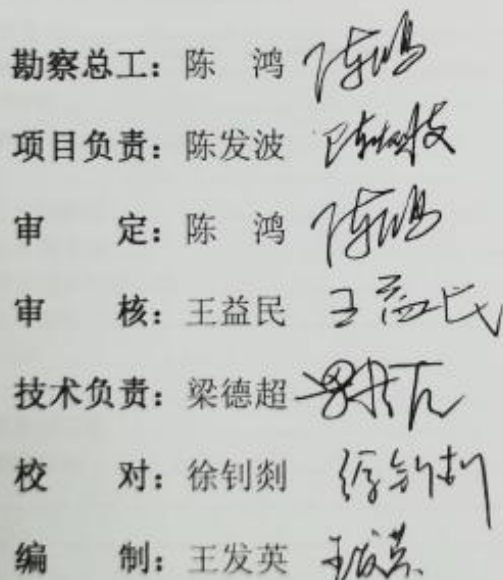 勘察总工：陈　鸿 陈鸿
项目负责：陈发波 陈发波
审　　定：陈　鸿 陈鸿
审　　核：王益民 王益民
技术负责：梁德超
校　　对：徐钊剡 徐钊剡
编　　制：王发英 王发英